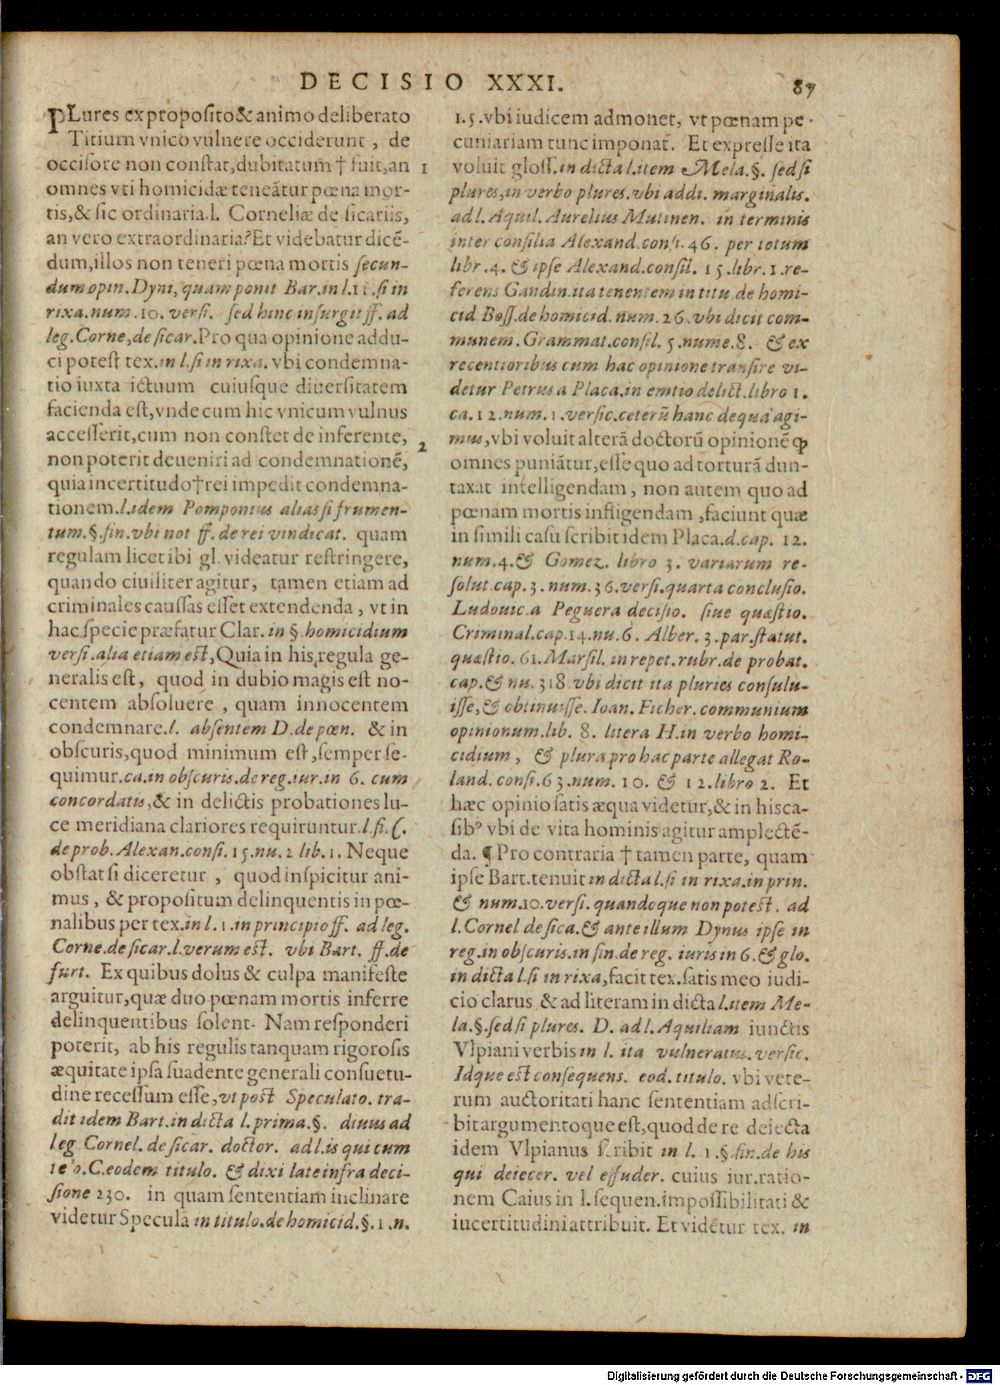 DECISIO XXXI. 87
PLures ex proposito & animo deliberato
Titium vnico vulnere occiderunt, de
occisore non constat, dubitatum † fuit, an 1
omnes vti homicidæ teneātur pœna mor-
tis, & sic ordinaria.l. Corneliæ de sicariis,
an vero extraordinaria? Et videbatur dicē-
dum, illos non teneri pœna mortis secun-
dum opin. Dyni, quam ponit Bar. in l. 11. si in
rixa. num. 10. versi. sed hinc insurgit ff. ad
leg. Corne, de sicar. Pro qua opinione addu-
ci potest tex. in l. si in rixa. vbi condemna-
tio iuxta ictuum cuiusque diuersitatem
facienda est, vnde cum hic vnicum vulnus
accesserit, cum non constet de inferente, 2
non poterit deueniri ad condemnationē,
quia incertitudo † rei impedit condemna-
tionem. l. idem Pomponius alias si frumen-
tum. §. fin. vbi not ff. de rei vindicat. quam
regulam licet ibi gl. videatur restringere,
quando ciuiliter agitur, tamen etiam ad
criminales caussas esset extendenda, vt in
hac specie præfatur Clar. in §. homicidium
versi. alia etiam est, Quia in his regula ge-
neralis est, quod in dubio magis est no-
centem absoluere, quam innocentem
condemnare. l. absentem D. de pœn. & in
obscuris, quod minimum est, semper se-
quimur. ca. in obscuris. de reg. iur. in 6. cum
concordatis, & in delictis probationes lu-
ce meridiana clariores requiruntur. l. fi. C.
de prob. Alexan. consi. 15. nu. 2 lib. 1. Neque
obstat si diceretur, quod inspicitur ani-
mus, & propositum delinquentis in pœ-
nalibus per tex. in l. 1. in principio ff. ad leg.
Corne. de sicar. l. verum est. vbi Bart. ff. de
furt. Ex quibus dolus & culpa manifeste
arguitur, quæ duo pœnam mortis inferre
delinquentibus solent. Nam responderi
poterit, ab his regulis tanquam rigorosis
æquitate ipsa suadente generali consuetu-
dine recessum esse, vt post Speculato. tra-
dit idem Bart. in dicta l. prima. §. diuus ad
leg Cornel. de sicar. doctor. ad l. is qui cum
C. eodem titulo. & dixi late infra deci-
sione 230. in quam sententiam inclinare
videtur Specula in titulo. de homicid. §. 1. n.
15. vbi iudicem admonet, vt pœnam pe-
cuniariam tunc imponat. Et expresse ita
voluit gloss. in dicta l. item Mela. §. sed si
plures, in verbo plures. vbi addi. marginalis.
ad l. Aquil. Aurelius Mutinen. in terminis
inter consilia Alexand. consi. 46. per totum
libr. 4. & ipse Alexand. consil. 15. libr. 1. re-
ferens Gandin. ita tenentem in titu. de homi-
cid Boss. de homicid. num. 26. vbi dicit com-
munem. Grammat. consil. 5. nume. 8. & ex
recentioribus cum hac opinione transire vi-
detur Petrus a Placa. in emtio delict. libro 1.
ca. 12. num. 1. versic. ceterū hanc de qua agi-
mus, vbi voluit alterā doctorū opinionē ꝙ
omnes puniātur, esse quo ad torturā dun-
taxat intelligendam, non autem quo ad
pœnam mortis infligendam, faciunt quæ
in simili casu scribit idem Placa. d. cap. 12.
num. 4. & Gomez. libro 3. variarum re-
solut. cap. 3. num. 36. versi. quarta conclusio.
Ludouic. a Peguera decisio. siue quæstio.
Criminal. cap. 14. nu. 6. Alber. 3. par. statut.
quæstio. 61. Marsil. in repet. rubr. de probat.
cap. & nu. 318. vbi dicit ita pluries consulu-
isse, & obtinuisse. Ioan. Ficher. communium
opinionum. lib. 8. litera H. in verbo homi-
cidium, & plura pro hac parte allegat Ro-
land. consi. 63. num. 10. & 12. libro 2. Et
hæc opinio satis æqua videtur, & in hisca-
sibꝰ vbi de vita hominis agitur amplectē-
da. ¶ Pro contraria † tamen parte, quam
ipse Bart. tenuit in dicta l. si in rixa. in prin.
& num. 10. versi. quandoque non potest. ad
l. Cornel de sica. & ante illum Dynus ipse in
reg. in obscuris. in fin. de reg. iuris in 6. & glo.
in dicta l. si in rixa, facit tex. satis meo iudi-
cio clarus & ad literam in dicta l. item Me-
la. §. sed si plures. D. ad l. Aquiliam iunctis
Vlpiani verbis in l. ita vulneratus. versic.
Idque est consequens. eod. titulo. vbi vete-
rum auctoritati hanc sententiam adscri-
bit argumentoque est, quod de re deiecta
idem Vlpianus scribit in l. 1. §. fin. de his
qui deiecer. vel effuder. cuius iur. ratio-
nem Caius in l. sequen. impossibilitati &
iucertitudini attribuit. Et videtur tex. in
Digitalisierung gefördert durch die Deutsche Forschungsgemeinschaft - DFG